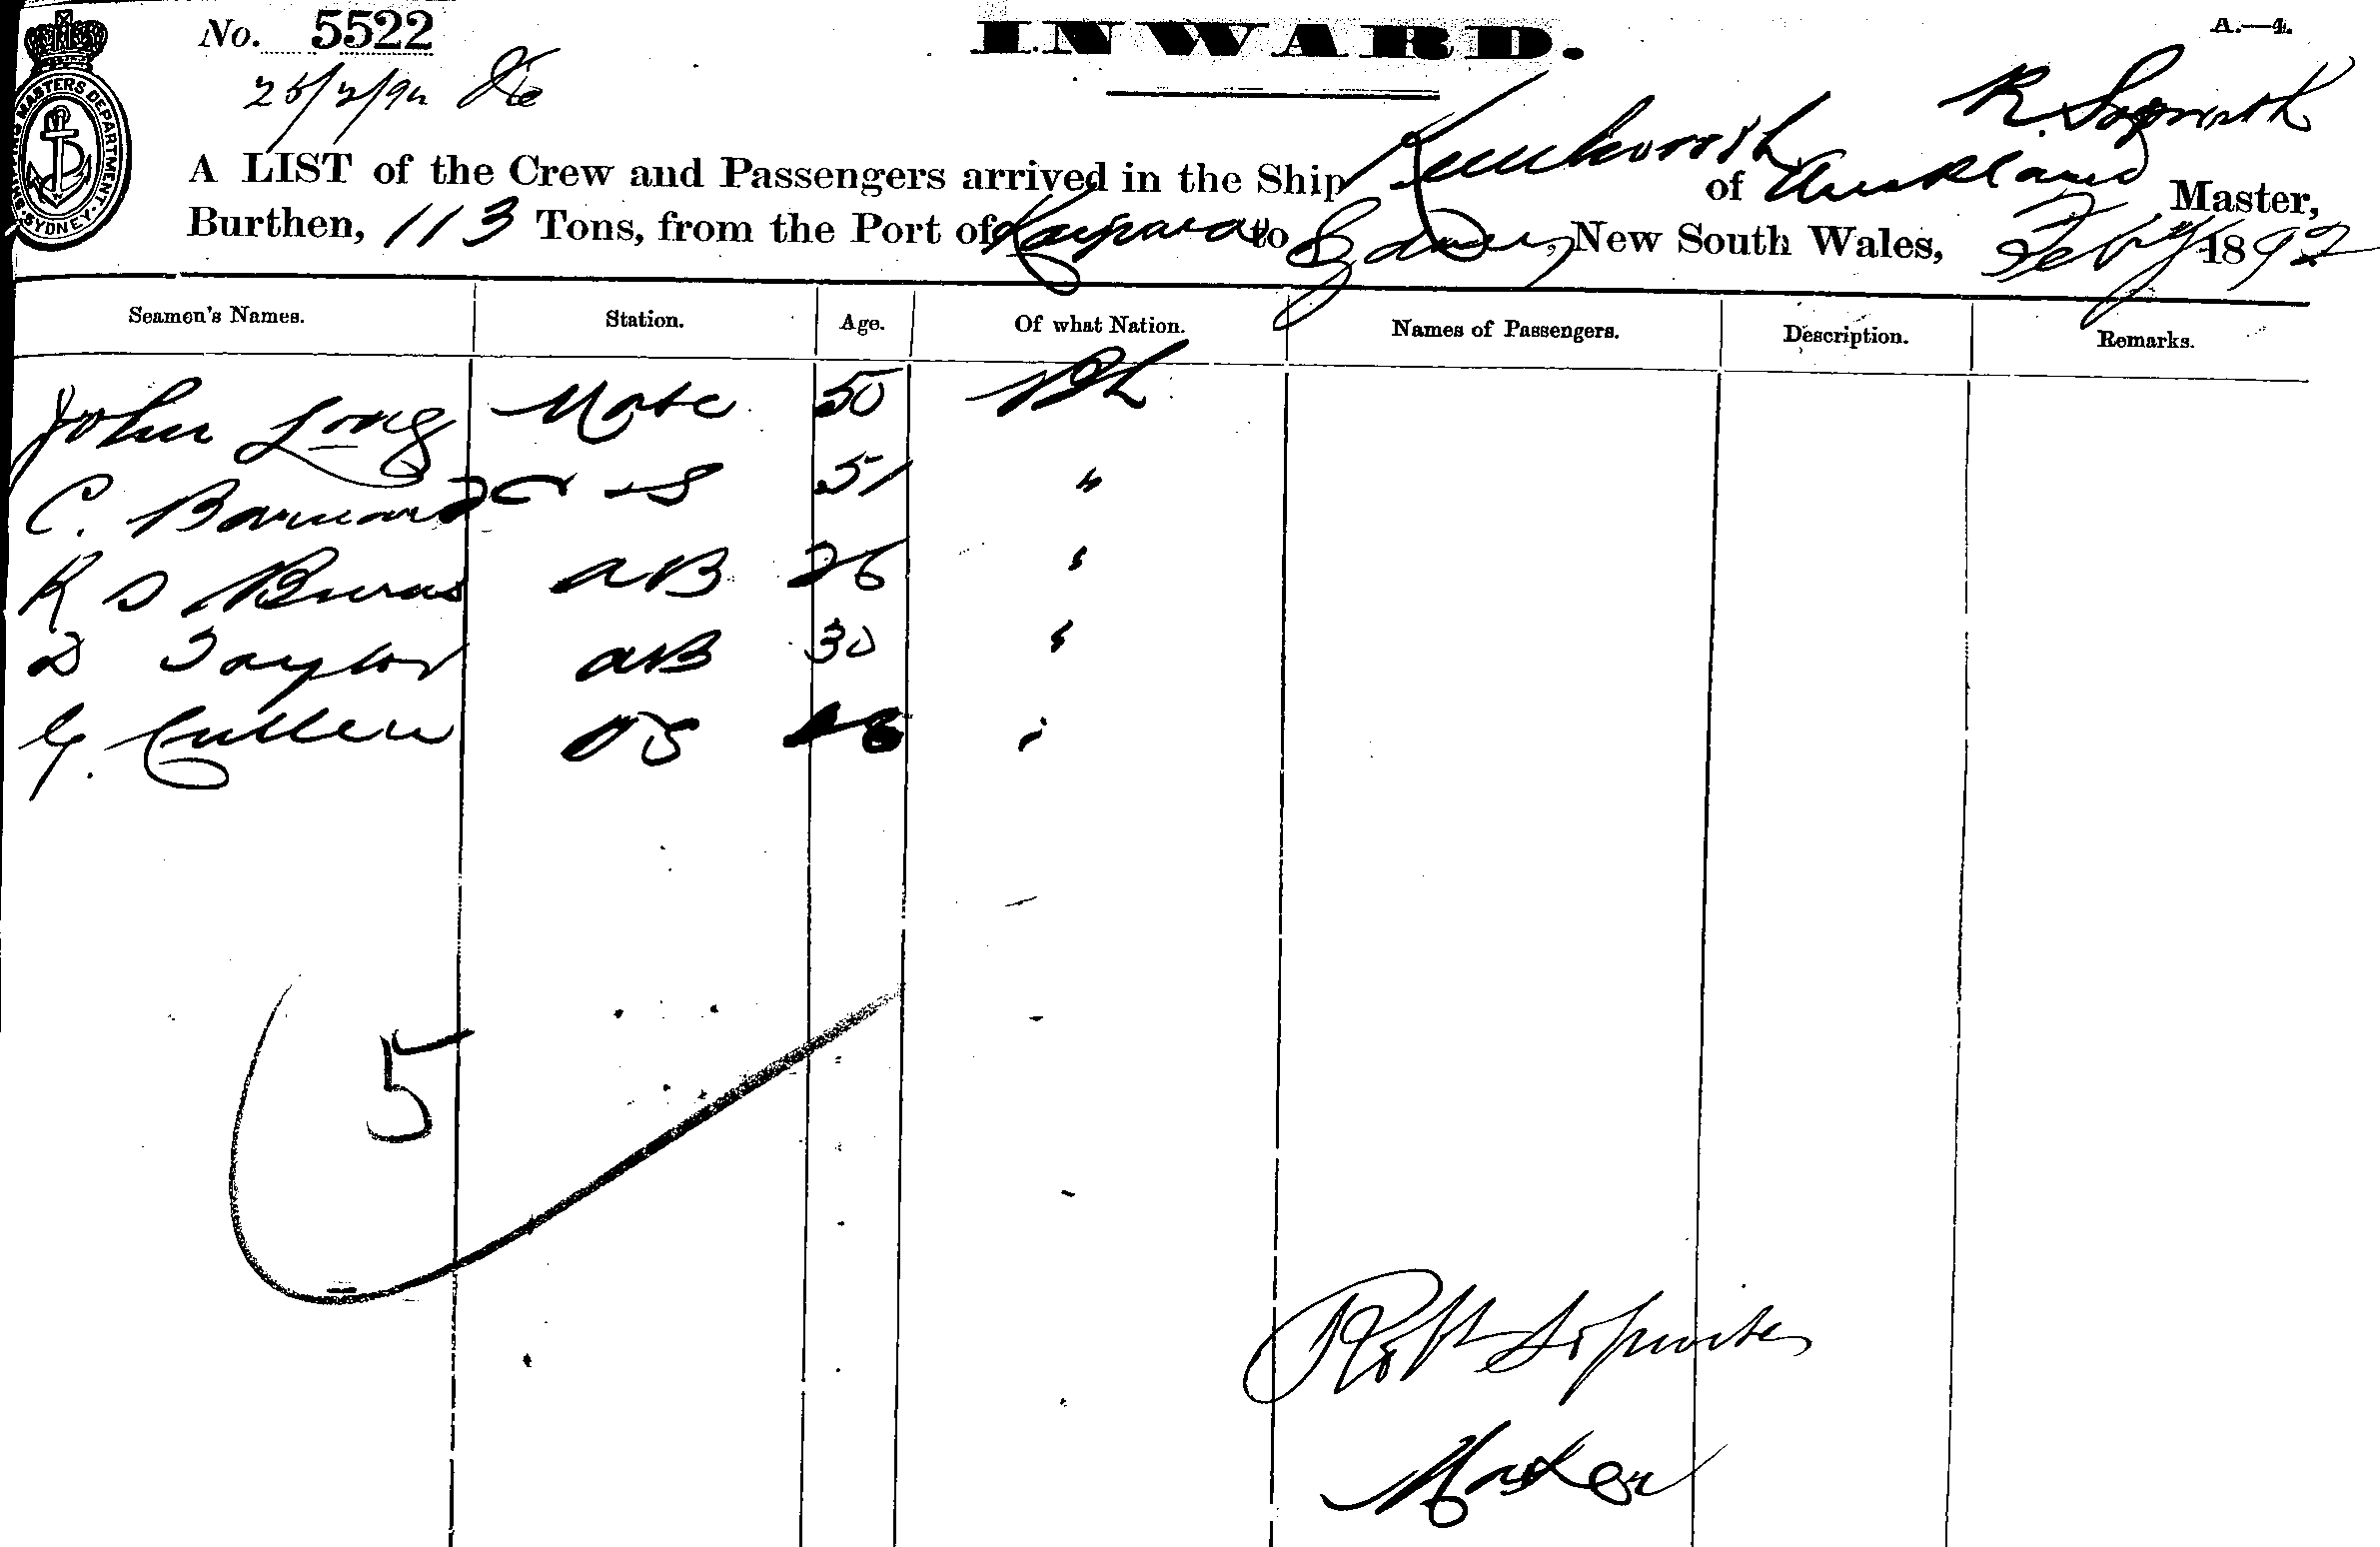 No. 5522
INWARD.
A.—4.
25/2/92
SHIPPING MASTERS DEPARTMENT. SYDNEY.
R. Sopwith
A LIST of the Crew and Passengers arrived in the Ship Kenilworth of Auckland Master,
Burthen, 113 Tons, from the Port of Kaipara to Sydney, New South Wales, Feby 1892
Seamen's Names. Station. Age. Of what Nation. Names of Passengers. Description. Remarks.
John Long Mate 50
C. Barnard C & S 51 "
R D Burns AB 26 "
D Taylor AB 30 "
G. Cullen OS "
5
Robt Sopwith
Master